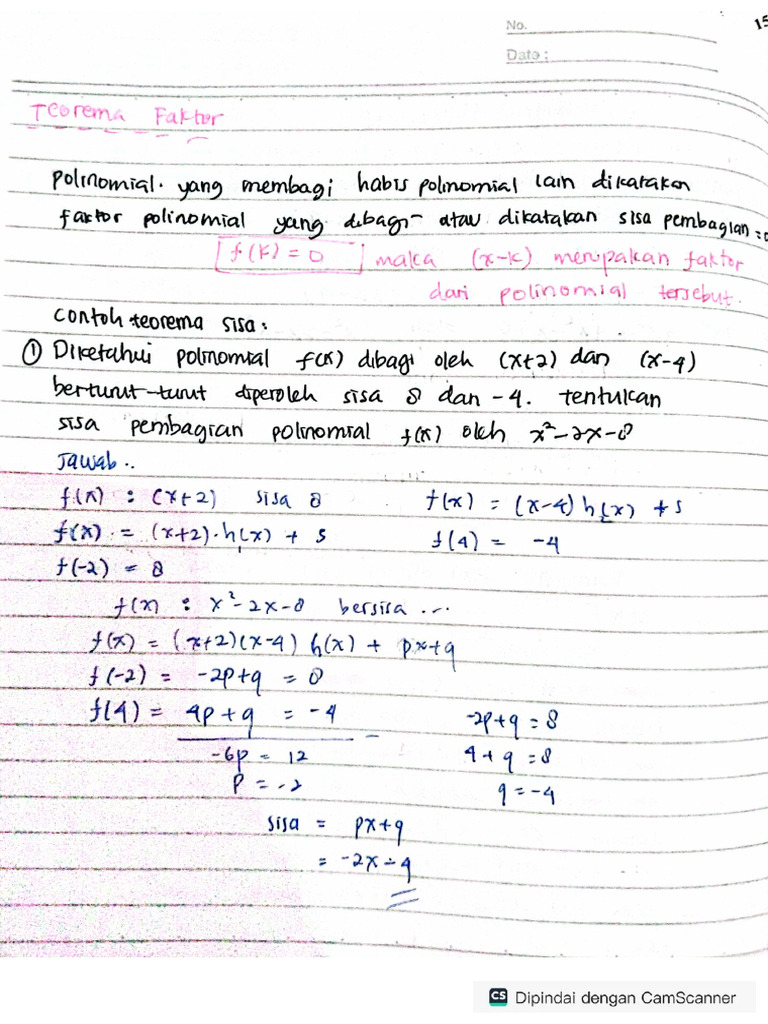 No.
15
Date :
Teorema Faktor
polinomial. yang membagi habis polinomial lain dikatakan
faktor polinomial yang dibagi atau dikatakan sisa pembagian = 0
f(k) = 0 maka (x-k) merupakan faktor
dari polinomial tersebut.
contoh teorema sisa :
① Diketahui polinomial f(x) dibagi oleh (x+2) dan (x-4)
berturut-turut diperoleh sisa 8 dan -4. tentukan
sisa pembagian polinomial f(x) oleh x²-2x-8
Jawab ..
f(x) : (x+2) sisa 8 f(x) = (x-4) h(x) + s
f(x) = (x+2).h(x) + s f(4) = -4
f(-2) = 8
f(x) : x²-2x-8 bersisa ...
f(x) = (x+2)(x-4) h(x) + px+q
f(-2) = -2p+q = 8
f(4) = 4p+q = -4 -2p+q = 8
-6p = 12 4+q = 8
p = -2 q = -4
sisa = px+q
= -2x-4
CS Dipindai dengan CamScanner